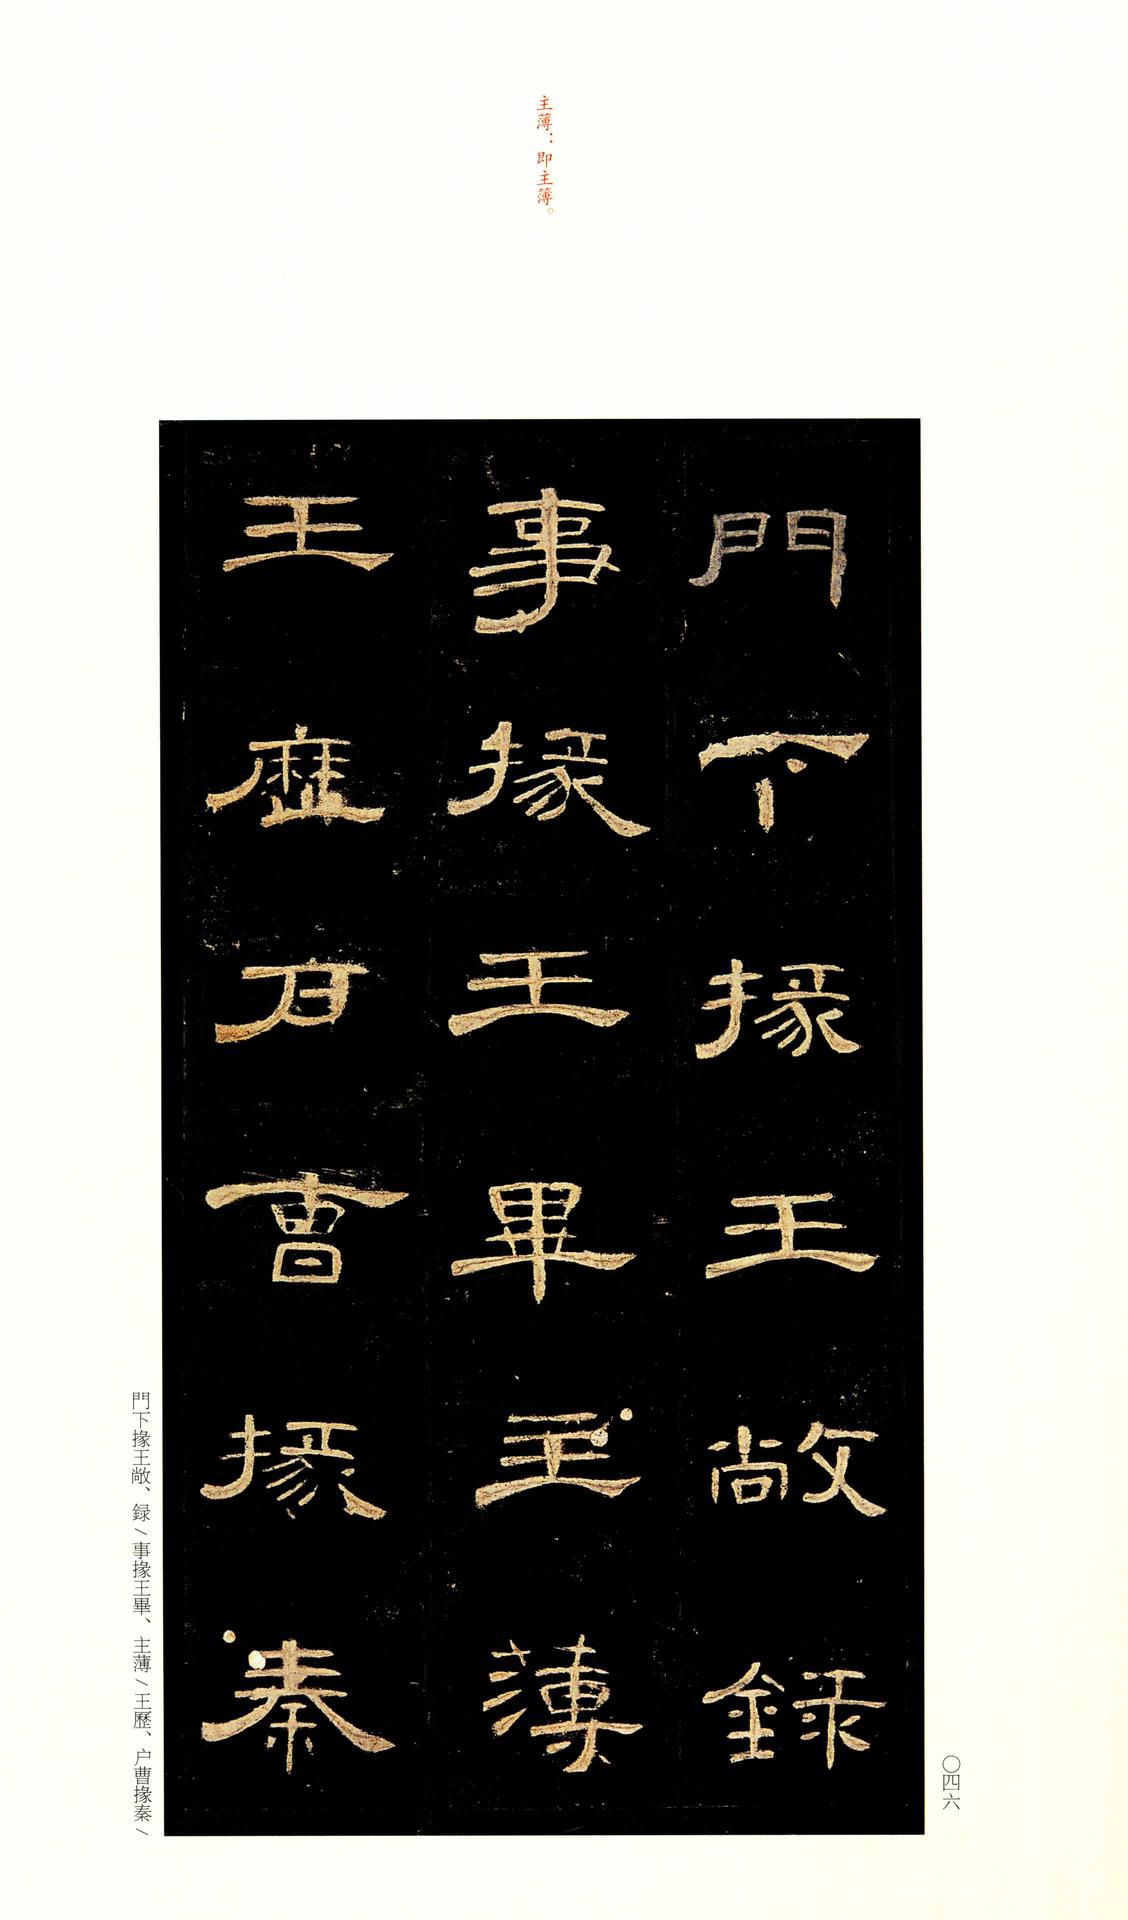 主薄：即主簿。
門下掾王敞錄
事掾王畢主薄
王歷戶曹掾秦
門下掾王敞、録/事掾王畢、主薄/王歷、户曹掾秦/
〇四六